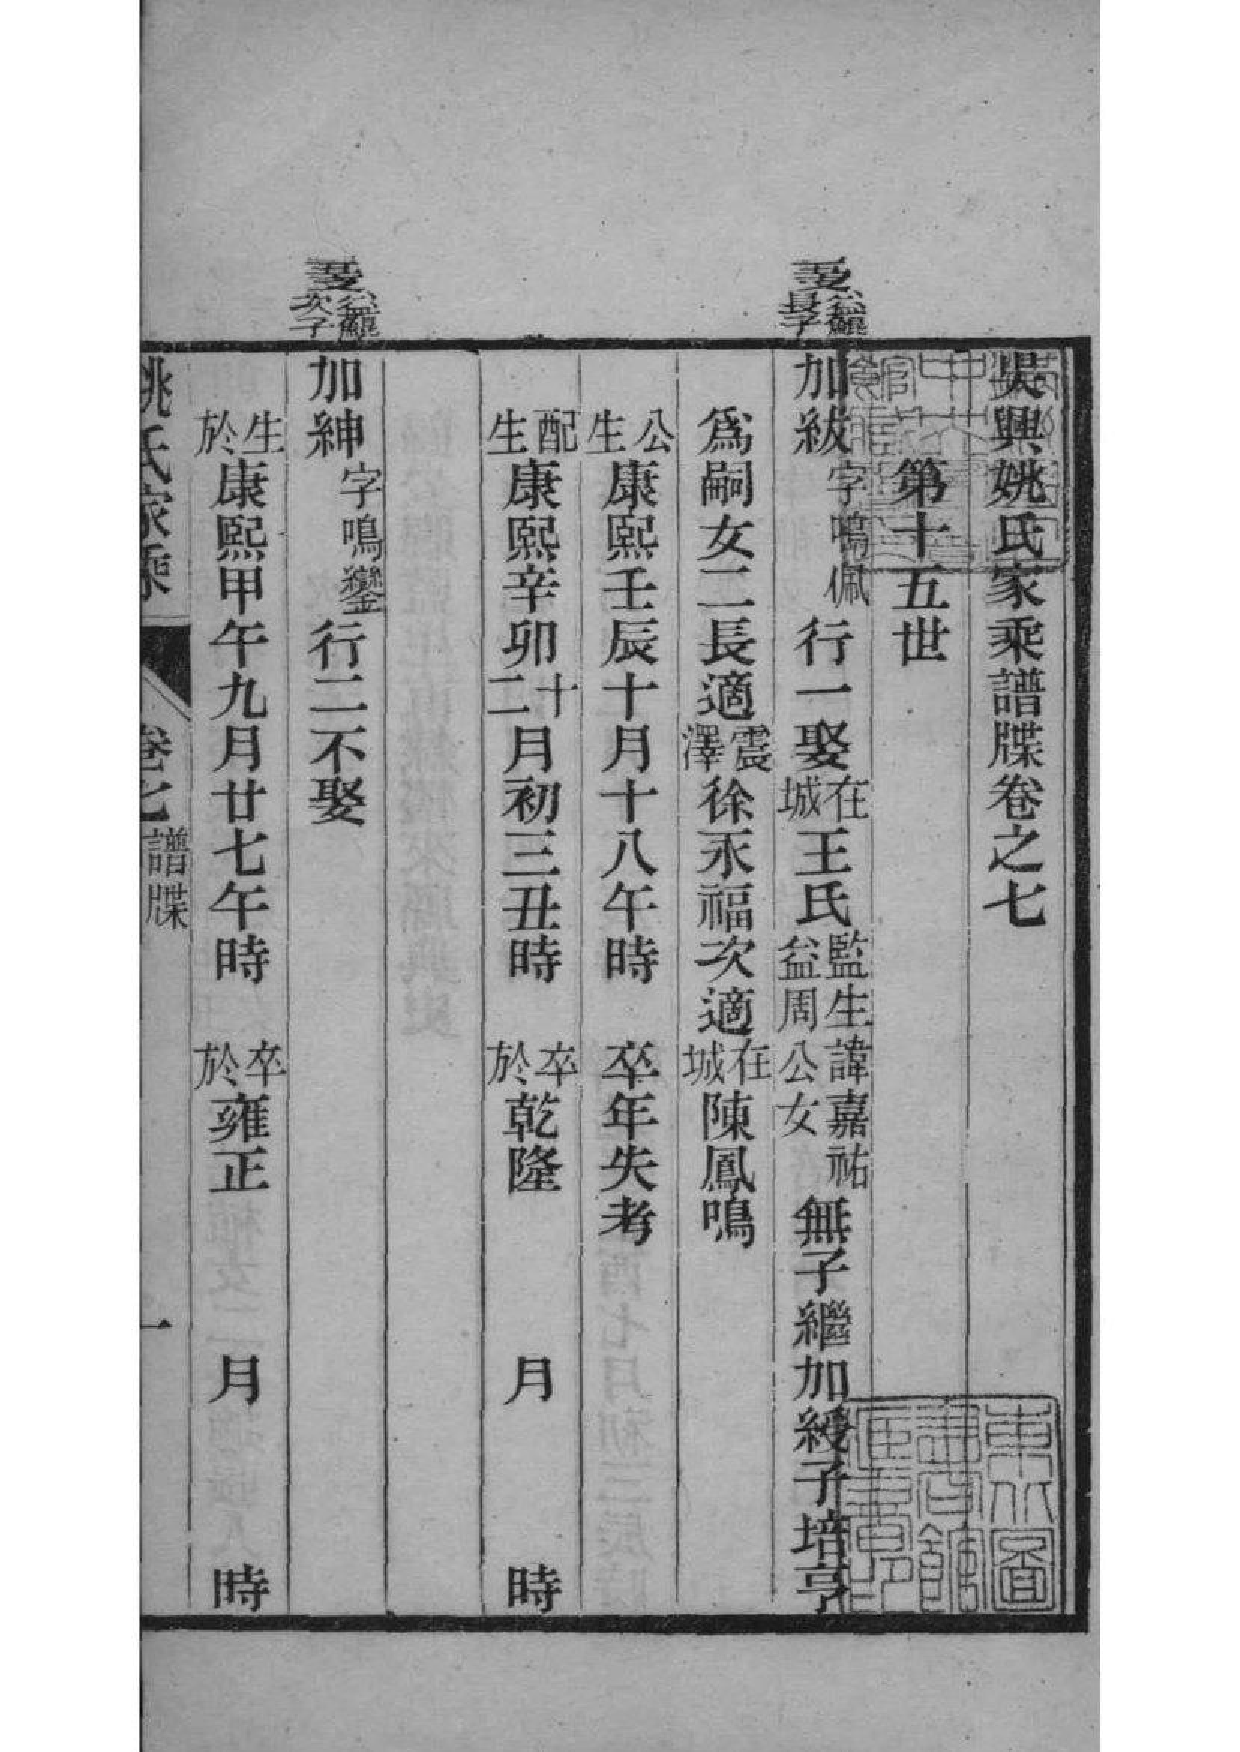 吳興姚氏家乘譜牒卷之七
第十五世
長子
加紱字鳴佩行一娶在城王氏監生諱嘉祐益周公女無子繼加綬子培亨
爲嗣女二長適震澤徐永福次適在城陳鳳鳴
公生康熙壬辰十月十八午時 卒年失考
配生康熙辛卯十二月初三丑時 卒於乾隆 月 時
次子
加紳字鳴鑾行二不娶
生於康熙甲午九月廿七午時 卒於雍正 月 時
姚氏家乘 卷七 譜牒 一